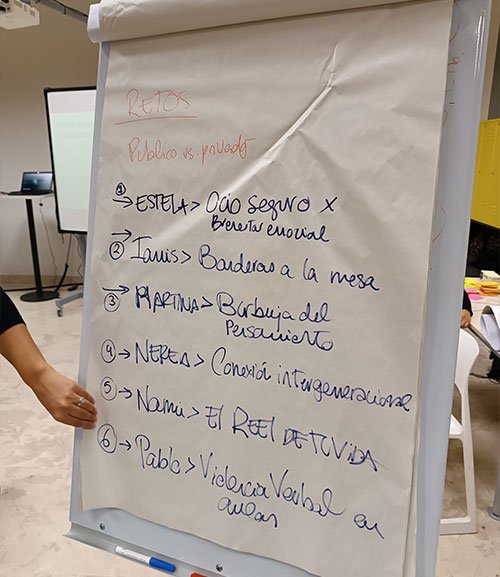 RETOS
Público vs. privado
1 → ESTELA > Ocio seguro x
Bienestar emocial
→ 2 Ianis > Banderas a la mesa
→ 3 MARTINA > Burbuja del
Pensamiento
4 → NEREA > Conexión intergeneracional
5 → Nami > El REEL DE TU VIDA
6 → Pablo > Violencia Verbal en
aulas